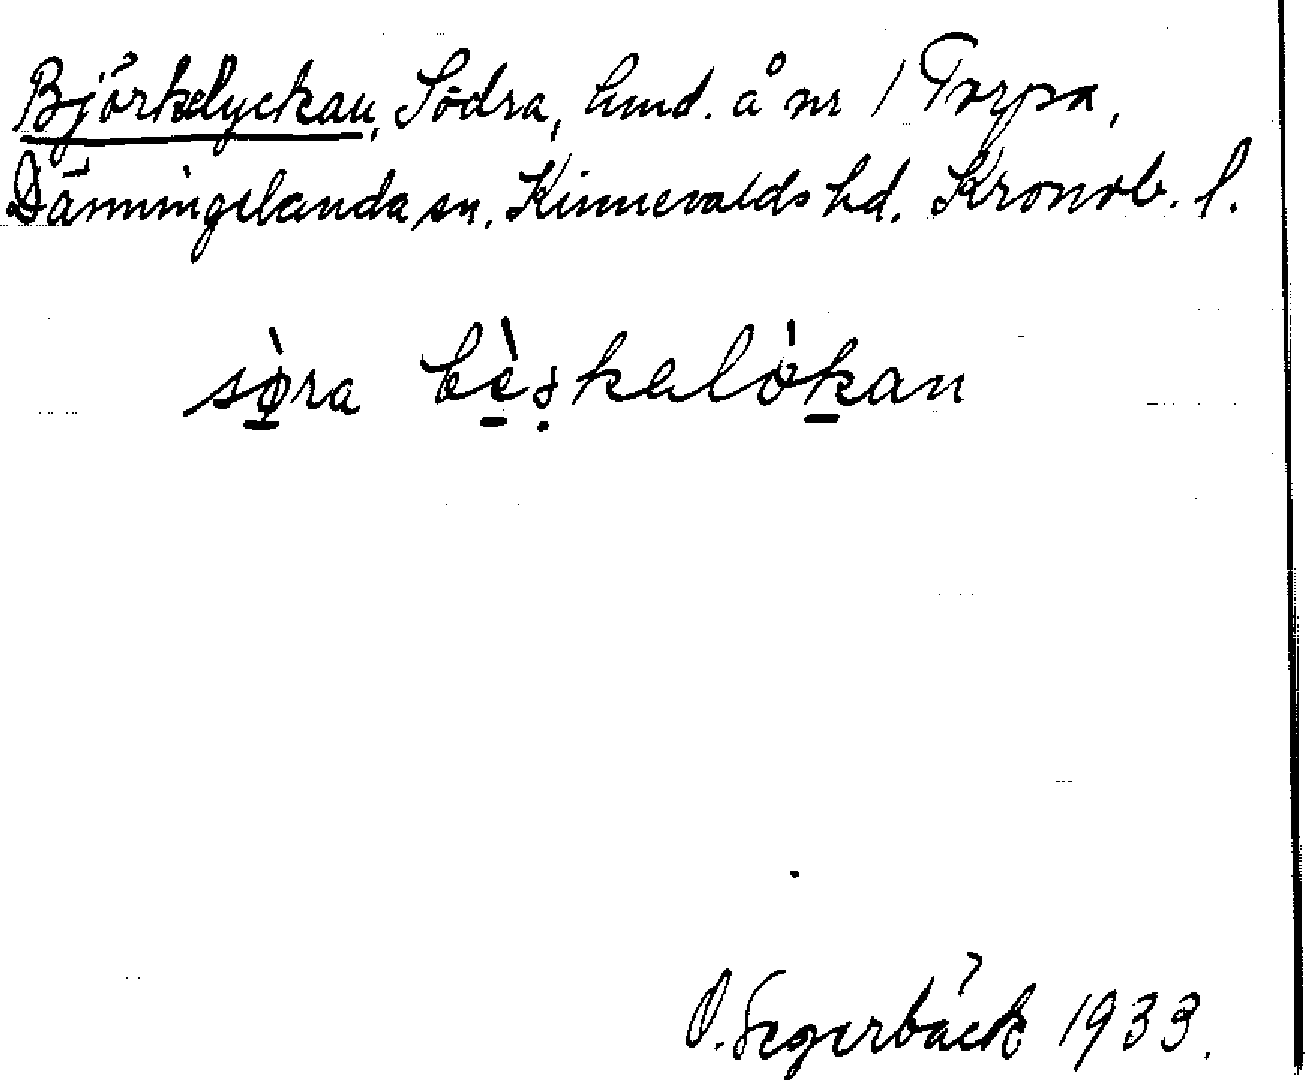 Björkelyckan, Södra, lmd. å nr 1 Torpa,
Dänningelanda sn. Kinnevalds hd. Kronob. l.
sø̀ra bèṣkeløkan
O. Segerbäck 1933.